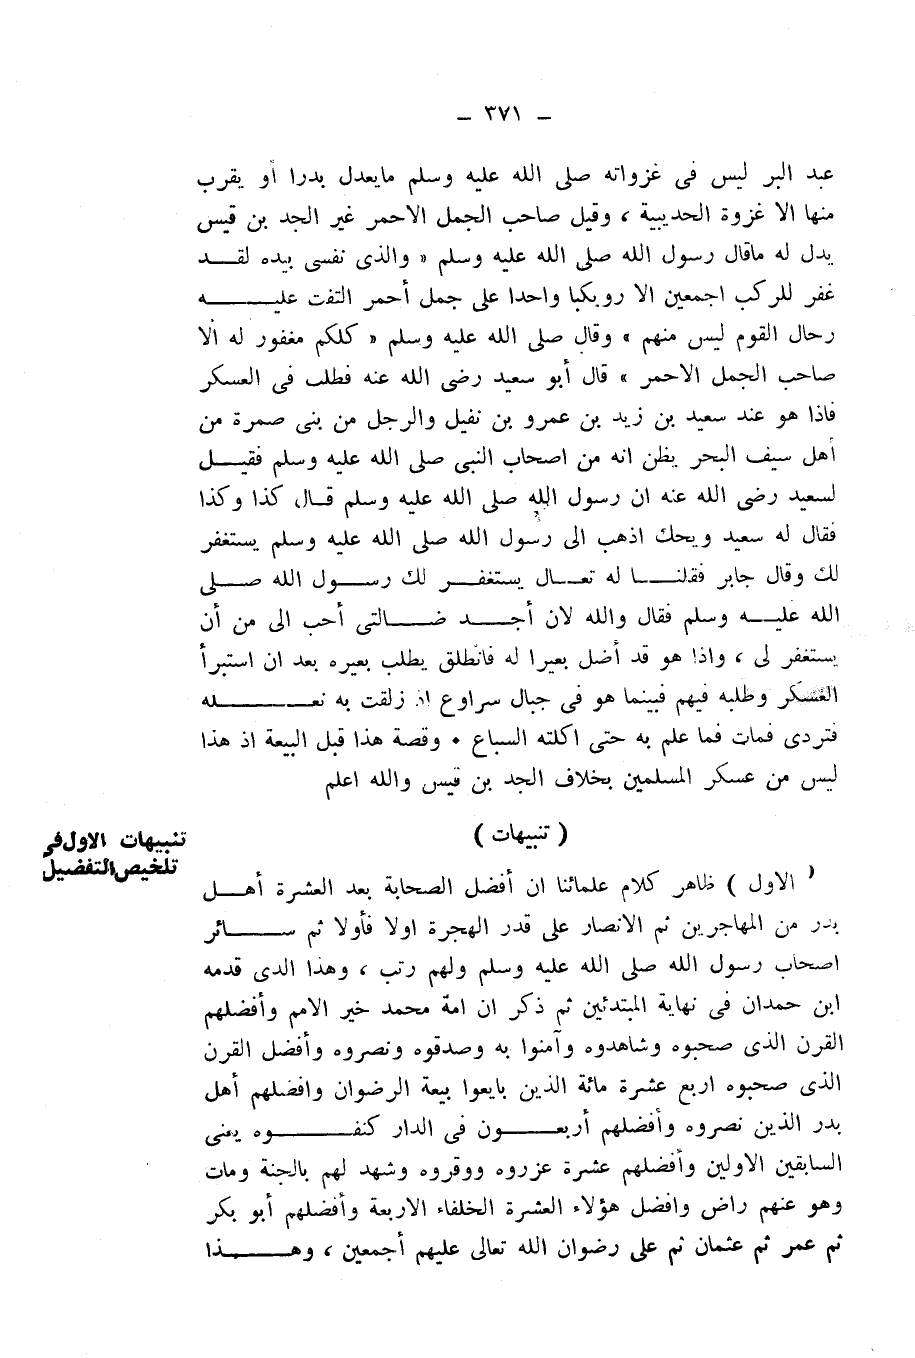 – ٣٧١ –
عبد البر ليس فى غزواته صلى الله عليه وسلم مايعدل بدرا أو يقرب
منها الا غزوة الحديبية ، وقيل صاحب الجمل الاحمر غير الجد بن قيس
يدل له ماقال رسول الله صلى الله عليه وسلم « والذى نفسى بيده لقد
غفر للركب اجمعين الا رويكبا واحدا على جمل أحمر التفت عليه
رحال القوم ليس منهم » وقال صلى الله عليه وسلم « كلكم مغفور له الا
صاحب الجمل الاحمر » قال أبو سعيد رضى الله عنه فطلب فى العسكر
فاذا هو عند سعيد بن زيد بن عمرو بن نفيل والرجل من بنى صمرة من
أهل سيف البحر يظن انه من اصحاب النبى صلى الله عليه وسلم فقيل
لسعيد رضى الله عنه ان رسول الله صلى الله عليه وسلم قال كذا وكذا
فقال له سعيد ويحك اذهب الى رسول الله صلى الله عليه وسلم يستغفر
لك وقال جابر فقلنا له تعال يستغفر لك رسول الله صلى
الله عليه وسلم فقال والله لان أجد ضالتى أحب الى من أن
يستغفر لى ، واذا هو قد أضل بعيرا له فانطلق يطلب بعيره بعد ان استبرأ
العسكر وطلبه فيهم فبينما هو فى جبال سراوع اذ زلقت به نعله
فتردى فمات فما علم به حتى اكلته السباع ٠ وقصة هذا قبل البيعة اذ هذا
ليس من عسكر المسلمين بخلاف الجد بن قيس والله اعلم
( تنبيهات )
تنبيهات الاول فى
تلخيص التفضيل
( الاول ) ظاهر كلام علمائنا ان أفضل الصحابة بعد العشرة أهل
بدر من المهاجرين ثم الانصار على قدر الهجرة اولا فأولا ثم سائر
اصحاب رسول الله صلى الله عليه وسلم ولهم رتب ، وهذا الذى قدمه
ابن حمدان فى نهاية المبتدئين ثم ذكر ان امة محمد خير الامم وأفضلهم
القرن الذى صحبوه وشاهدوه وآمنوا به وصدقوه ونصروه وأفضل القرن
الذى صحبوه اربع عشرة مائة الذين بايعوا بيعة الرضوان وافضلهم أهل
بدر الذين نصروه وأفضلهم أربعون فى الدار كنفوه يعنى
السابقين الاولين وأفضلهم عشرة عزروه ووقروه وشهد لهم بالجنة ومات
وهو عنهم راض وافضل هؤلاء العشرة الخلفاء الاربعة وأفضلهم أبو بكر
ثم عمر ثم عثمان ثم على رضوان الله تعالى عليهم أجمعين ، وهذا